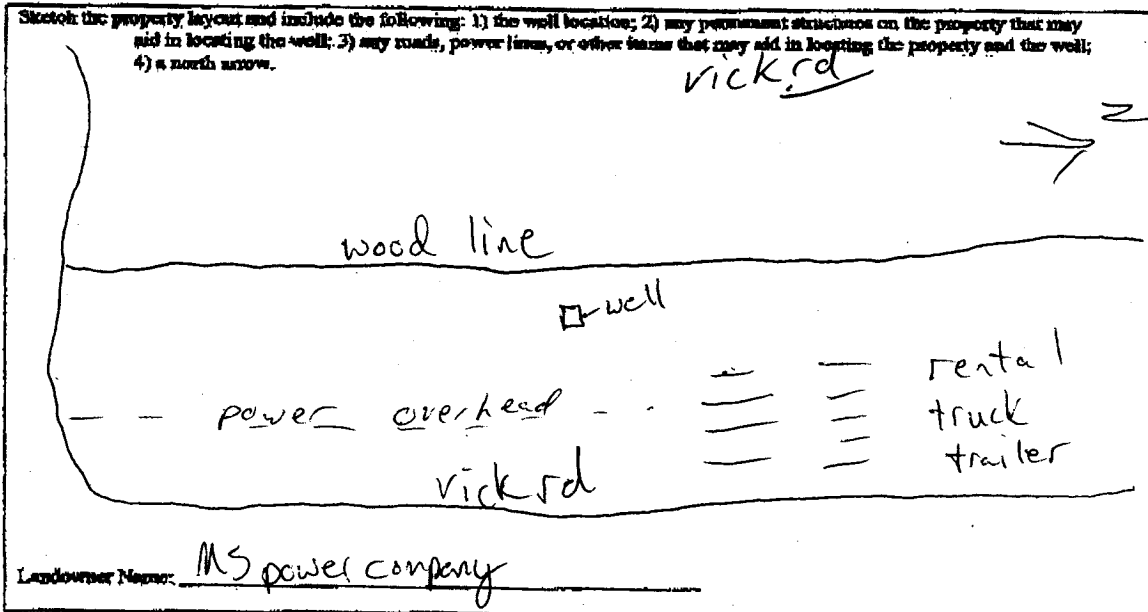 Sketch the property layout and include the following: 1) the well location; 2) any permanent structures on the property that may
aid in locating the well; 3) any roads, power lines, or other items that may aid in locating the property and the well;
4) a north arrow.
vick rd
N
wood line
well
rental
power overhead
truck
trailer
vick rd
Landowner Name: MS power company